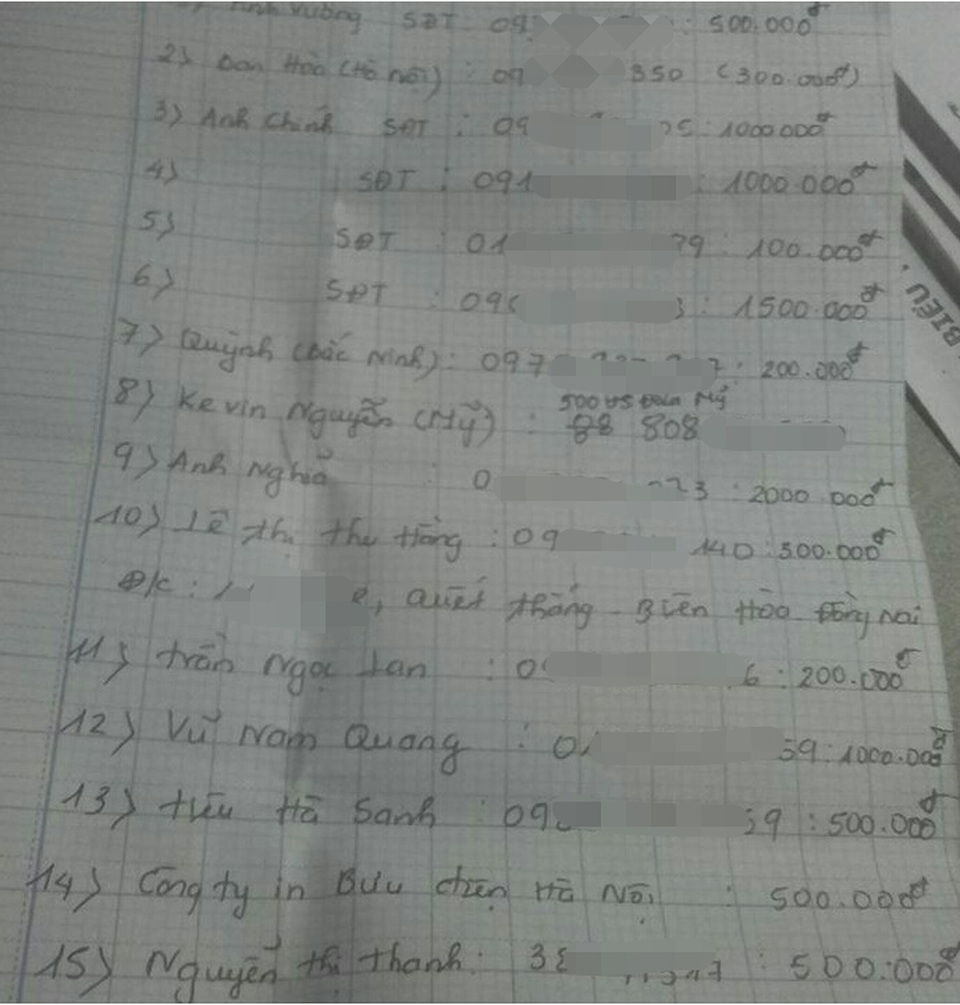 Anh Vương SĐT 09 : 500.000đ
2) Đoan Hòa (Hà Nội) : 09 350 (300.000đ)
3) Anh Chính SĐT : 09 25 : 1000000đ
4) SĐT : 091 : 1000.000đ
5) SĐT : 01 79 : 100.000đ
6) SĐT : 09 3 : 1500.000đ
7) Quỳnh (Bắc Ninh) : 097 7 : 200.000đ
500 US Đola Mỹ
8) Kevin Nguyễn (Mỹ) : 88 808
9) Anh Nghĩa 0 223 : 2000.000đ
10) Lê thị thu Hồng : 09 140 : 300.000đ
Đ/c : e, Quiết thắng - Biên Hòa Đồng Nai
11) trần Ngọc Lan : 0 6 : 200.000đ
BIỂU
12) Vũ Nam Quang : 0 59 : 1000.000đ
13) tiêu Hà Sanh : 09 59 : 500.000đ
14) Công ty in Bưu điện Hà Nội : 500.000đ
15) Nguyễn thị thanh : 38 : 500.000đ